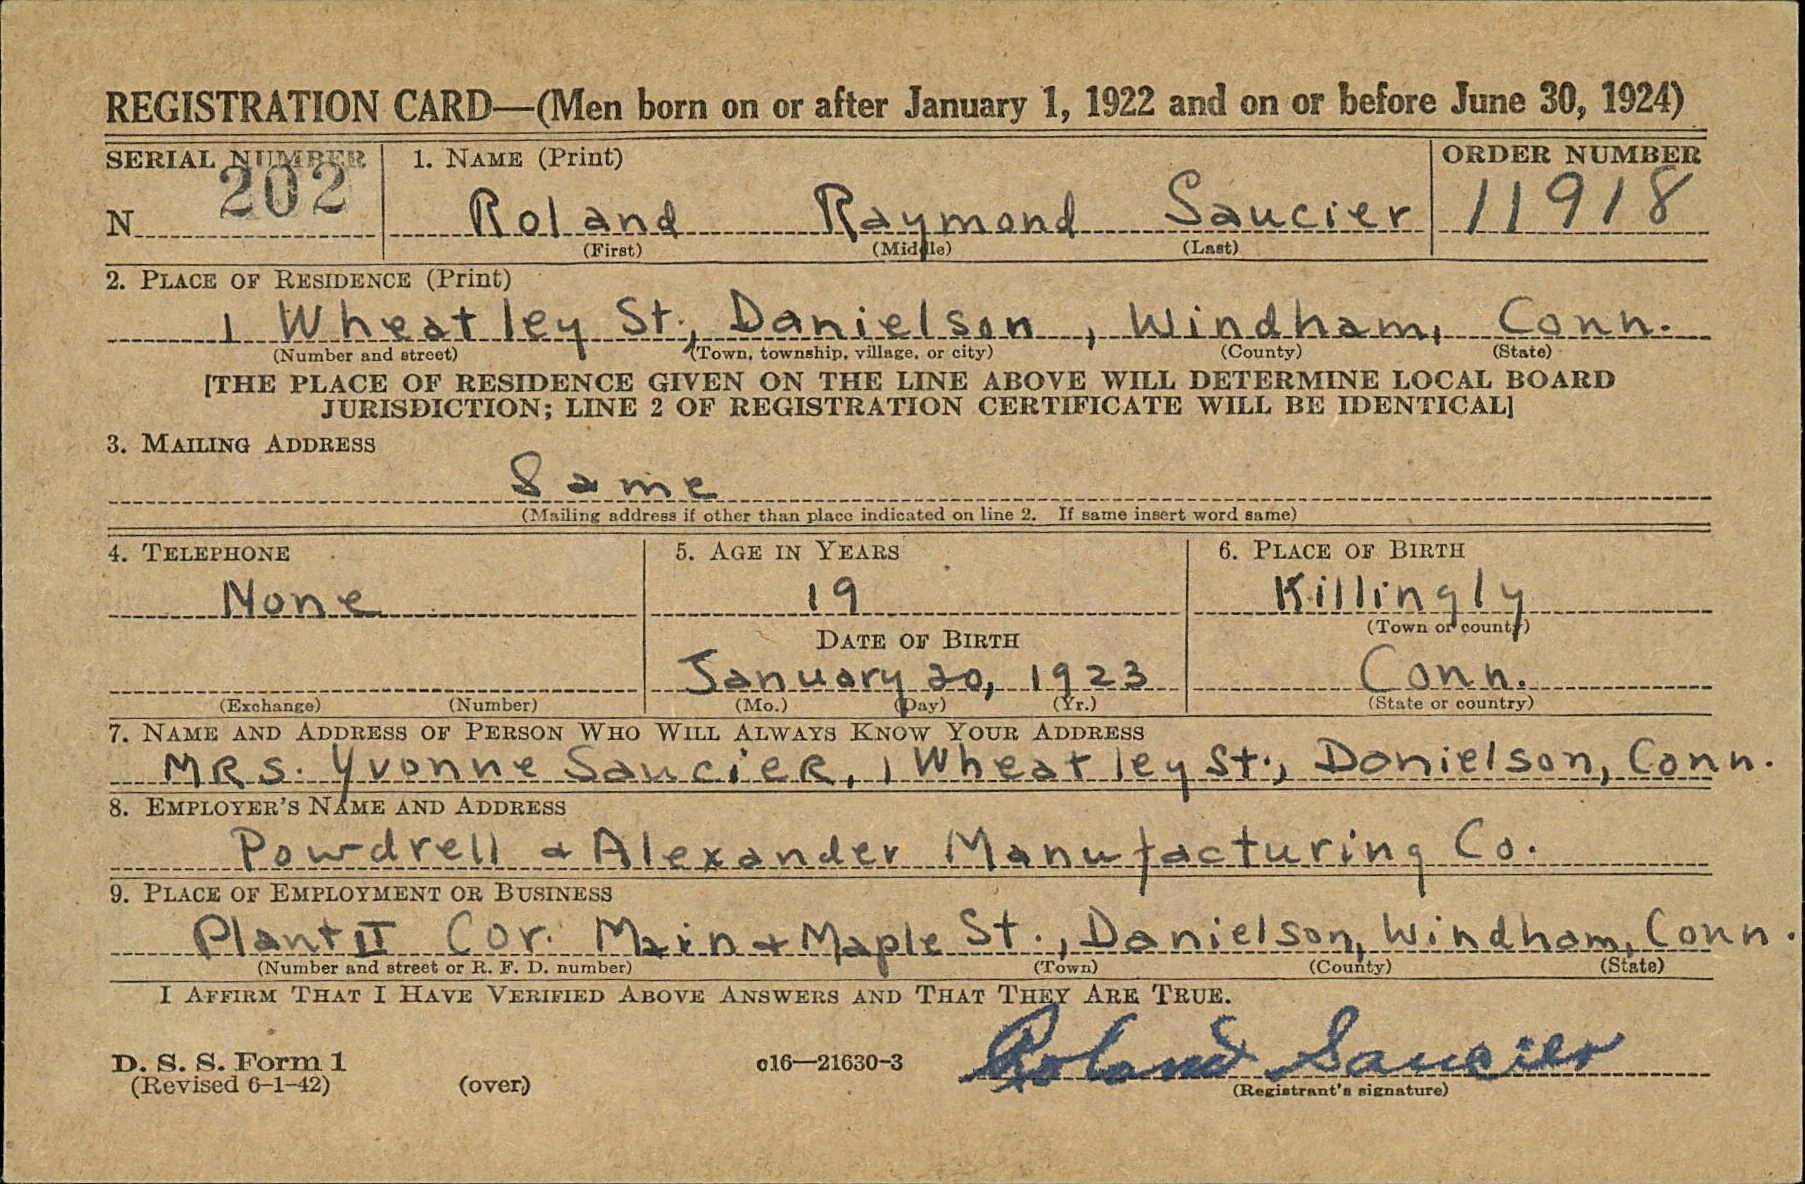 REGISTRATION CARD—(Men born on or after January 1, 1922 and on or before June 30, 1924)
SERIAL NUMBER
N 202
1. NAME (Print)
Roland Raymond Saucier
(First) (Middle) (Last)
ORDER NUMBER
11918
2. PLACE OF RESIDENCE (Print)
1 Wheatley St., Danielson, Windham, Conn.
(Number and street) (Town, township, village, or city) (County) (State)
[THE PLACE OF RESIDENCE GIVEN ON THE LINE ABOVE WILL DETERMINE LOCAL BOARD
JURISDICTION; LINE 2 OF REGISTRATION CERTIFICATE WILL BE IDENTICAL]
3. MAILING ADDRESS
Same
(Mailing address if other than place indicated on line 2. If same insert word same)
4. TELEPHONE
None
(Exchange) (Number)
5. AGE IN YEARS
19
DATE OF BIRTH
January 20, 1923
(Mo.) (Day) (Yr.)
6. PLACE OF BIRTH
Killingly
(Town or county)
Conn.
(State or country)
7. NAME AND ADDRESS OF PERSON WHO WILL ALWAYS KNOW YOUR ADDRESS
MRS. Yvonne SauciER, 1 Wheatley St., Danielson, Conn.
8. EMPLOYER'S NAME AND ADDRESS
Powdrell & Alexander Manufacturing Co.
9. PLACE OF EMPLOYMENT OR BUSINESS
Plant II Cor. Main & Maple St., Danielson, Windham, Conn.
(Number and street or R. F. D. number) (Town) (County) (State)
I AFFIRM THAT I HAVE VERIFIED ABOVE ANSWERS AND THAT THEY ARE TRUE.
Roland Saucier
(Registrant's signature)
D. S. S. Form 1
(Revised 6–1–42) (over) c16—21630-3